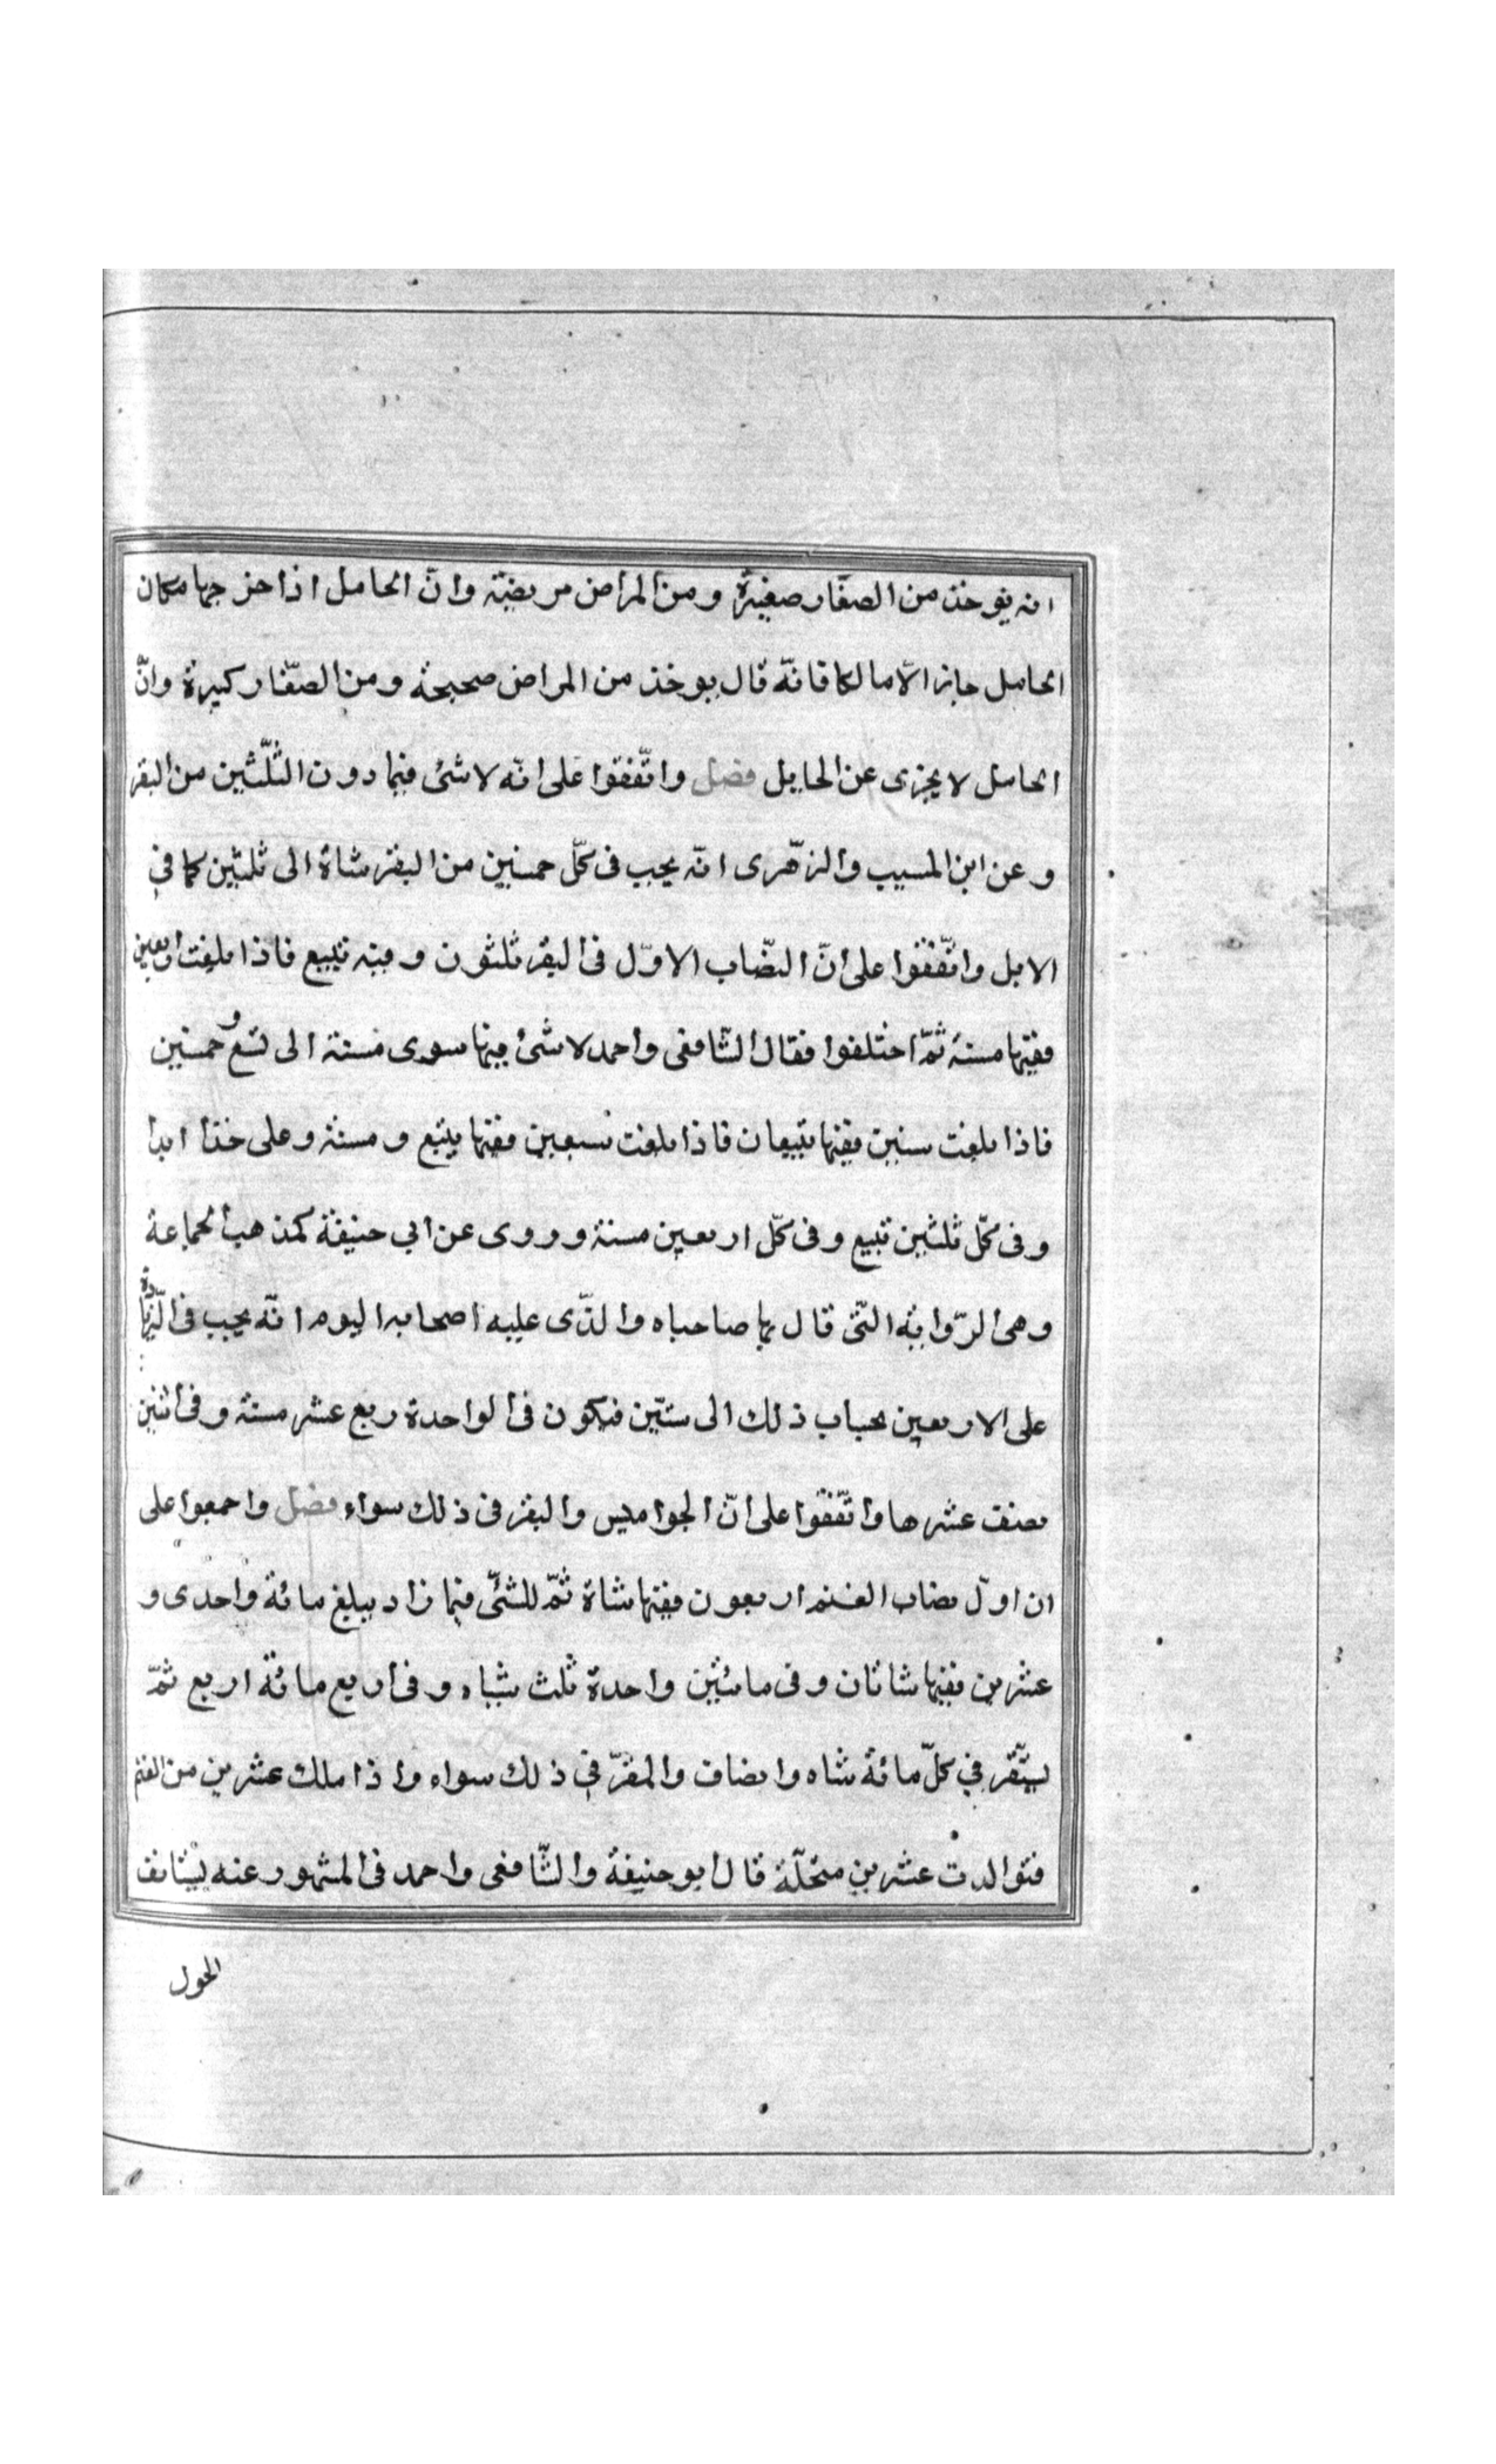 انه يؤخذ من الصغار صغيرة ومن المراض مريضة وانّ الحامل اذا اخرجها مكان
الحامل جايز الاّ مالكا فانّه قال يوخذ من المراض صحيحة ومن الصّغار كبيرة وانّ
الحامل لا يجزى عن الحايل فصل واتّفقوا على انّه لا شئ فيما دون الثّلثين من البقر
وعن ابن المسيب والزهّرى انّه يجب فى كلّ خمسين من البقر شاة الى ثلثين كما في
الابل واتّفقوا على انّ النصّاب الاوّل فى البقر ثلثون وفيه تبيع فاذا بلغت اربعين
ففيها مسنة ثمّ اختلفوا فقال الشّافعى واحمد لا شئ فيها سوى مسنة الى تسع وخمسين
فاذا بلغت ستين ففيها تبيعان فاذا بلغت سبعين ففيها تبيع ومسنة وعلى هذا ابدا
وفى كلّ ثلثين تبيع وفى كلّ اربعين مسنة وروى عن ابي حنيفة كمذهب الجماعة
وهى الرّواية الّتى قال بها صاحباه والّذى عليه اصحابه اليوم انّه يجب فى الزّيادة
على الاربعين بحساب ذلك الى ستّين فيكون فى الواحدة ربع عشر مسنة وفى اثنين
نصف عشرها واتّفقوا على انّ الجواميس والبقر فى ذلك سواء فصل واجمعوا على
ان اوّل نصاب الغنم اربعون ففيها شاة ثمّ للشئّ فيما زاد يبلغ مائة واحدى و
عشرين ففيها شاتان وفى مائتين واحدة ثلث شياه وفى اربع مائة اربع ثمّ
يستّقر في كلّ مائة شاه واضاف والمقرّ في ذلك سواء واذا ملك عشرين من الغنم
فتوالدت عشرين سخلّة قال ابو حنيفة والشّافعى واحمد فى المشهور عنه يستانف
الحول